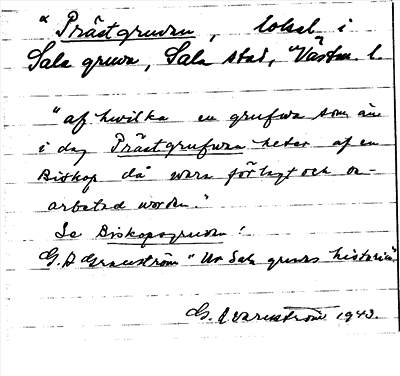 "Prästgruvan, lokal i
Sala gruva, Sala stad, Västm. l.
"af hwilka en grufwa som än
i dag Prästgrufwan heter af en
Biskop då wara förlagt och
arbetad worden."
Se Biskopsgruvan!
"Ur Sala gruvas historia"
1943.